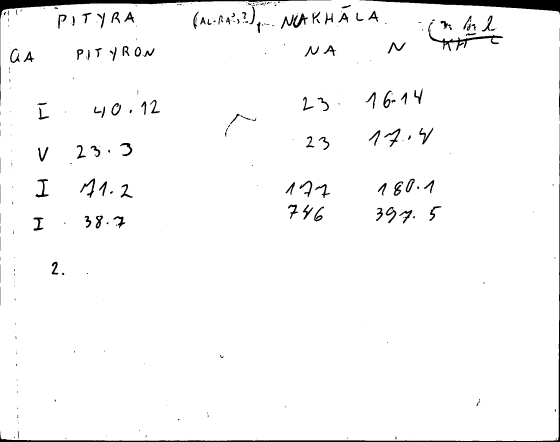 PITYRA NAKHĀLA
GA PITYRON NA N KH L
I 40.12 23 16.14
V 23.3 23 17.4
I 71.2 177 180.1
I 38.7 746 397.5
2.